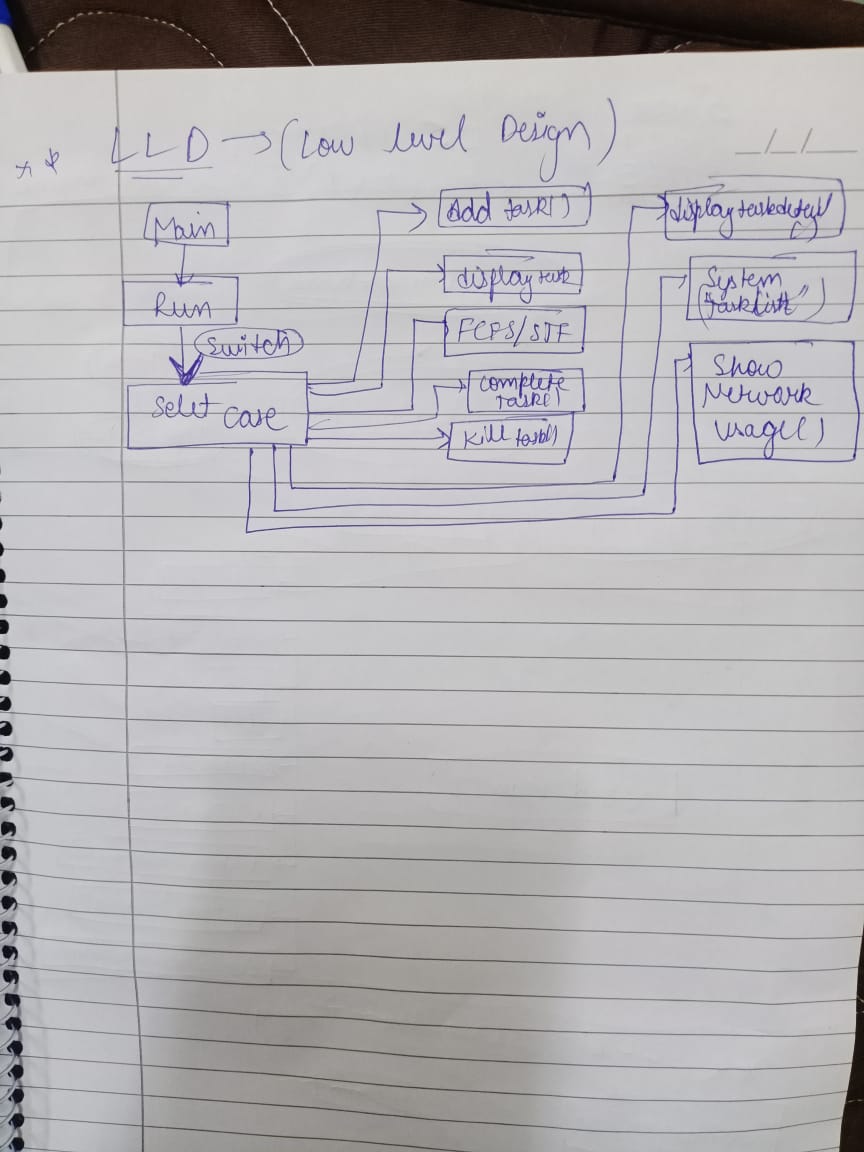 ** LLD → (Low level Design)
Main
Run
Switch
Selet case
Add task()
display task
FCFS/STF
complete
task(
Kill task()
display taskdetail
()
System
("tasklist")
Show
Network
Usage()